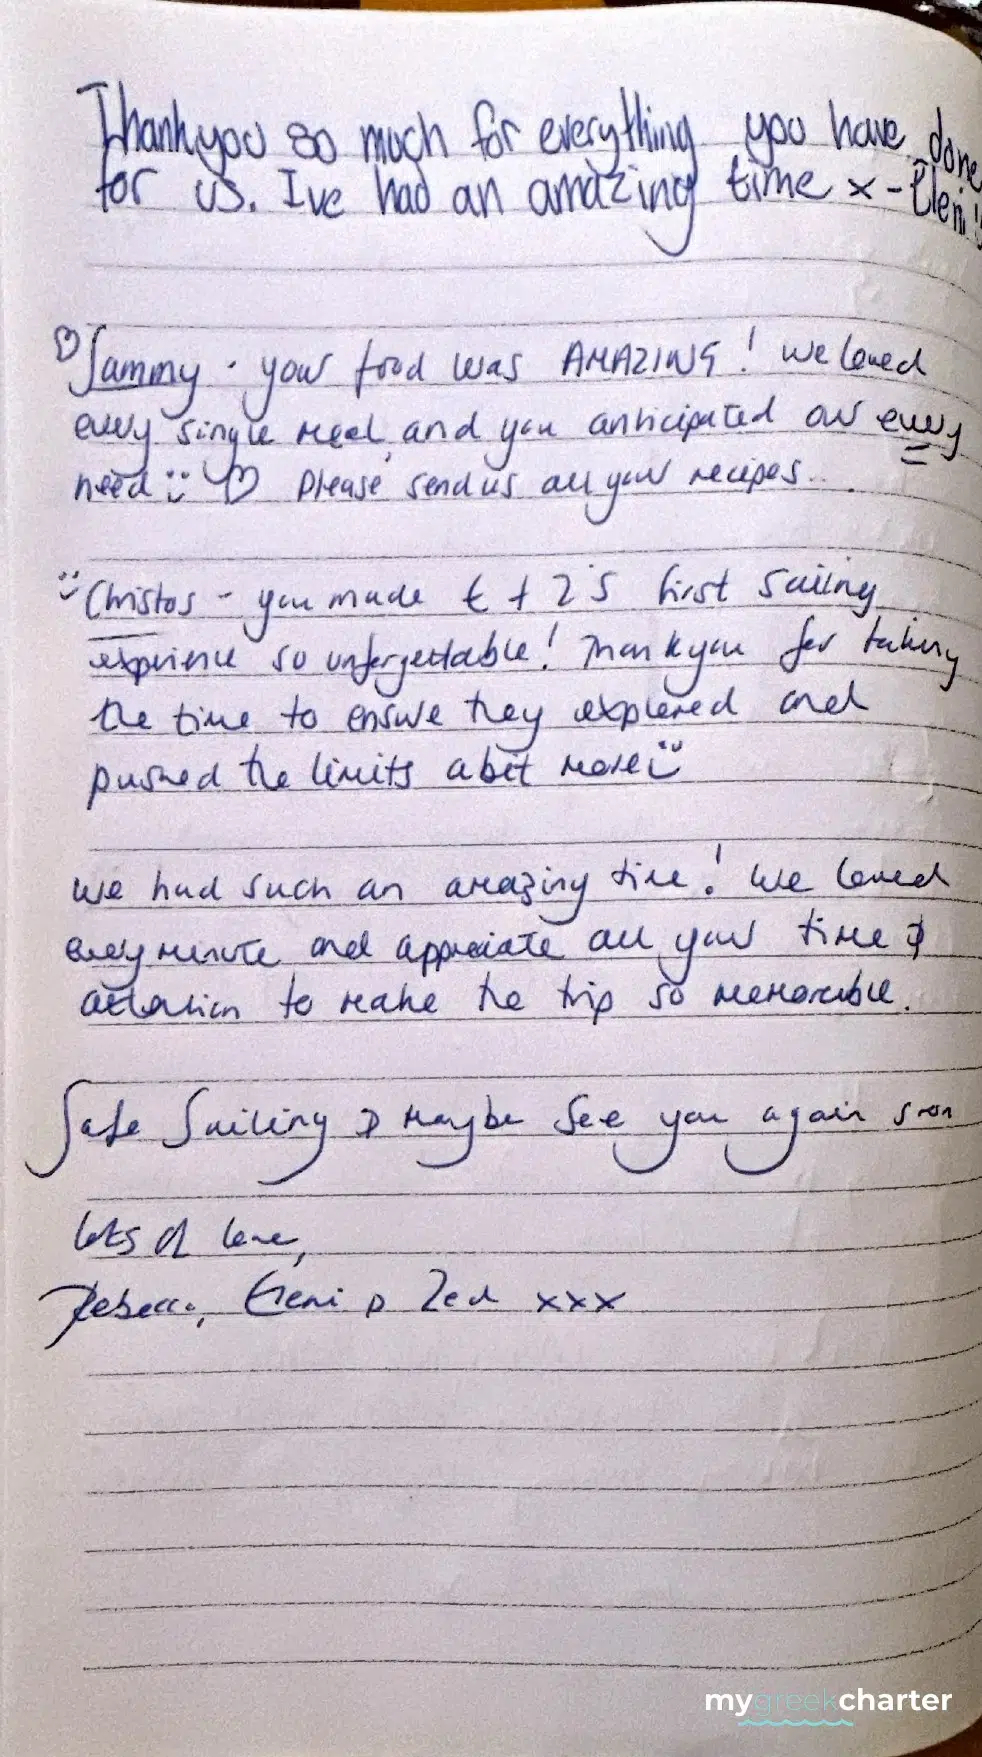 Thankyou so much for everything you have done
for us. Ive had an amazing time x - Eleni!!
♡ Sammy - your food was AMAZING! We loved
every single meal, and you anticipated our every
need :) ♡ Please send us all your recipes...
:) Christos - you made E + Z's first sailing
experience so unforgettable! Thankyou for taking
the time to ensure they explored and
pushed the limits a bit more :)
We had such an amazing time! We loved
every minute and appreciate all your time &
attention to make the trip so memorable.
Safe Sailing & Maybe See you again soon
lots of love,
Rebecca, Eleni & Zed xxx
mygreekcharter